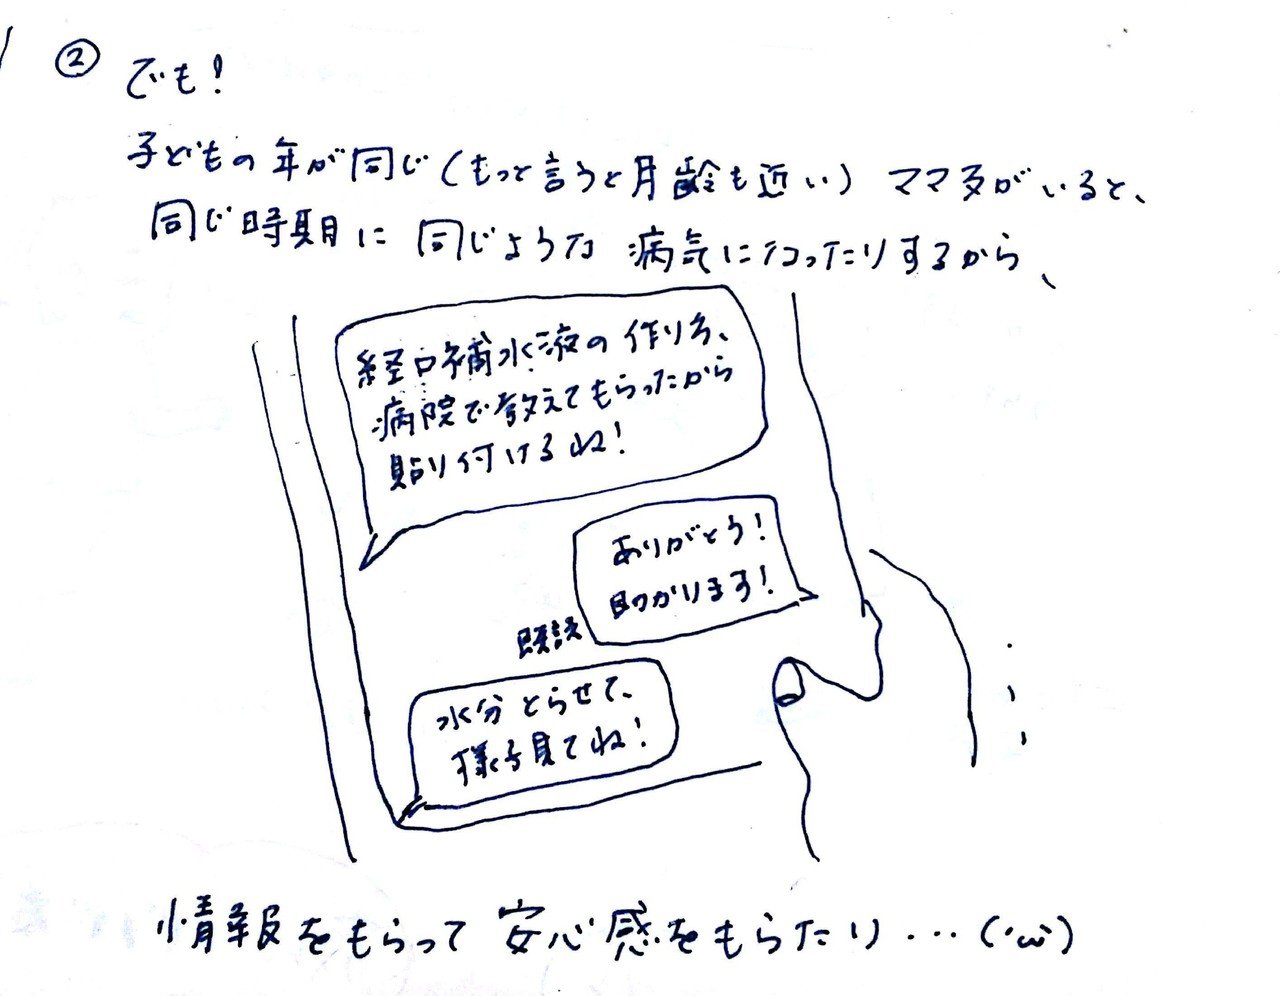 ②
でも!
子どもの年が同じ(もっと言うと月齢も近い) ママ友がいると、
同じ時期に 同じような 病気になったりするから、
経口補水液の作り方、
病院で教えてもらったから
貼り付けるね!
ありがとう!
助かります!
既読
水分とらせて、
様子見てね!
情報をもらって 安心感をもらたり…(・ω)